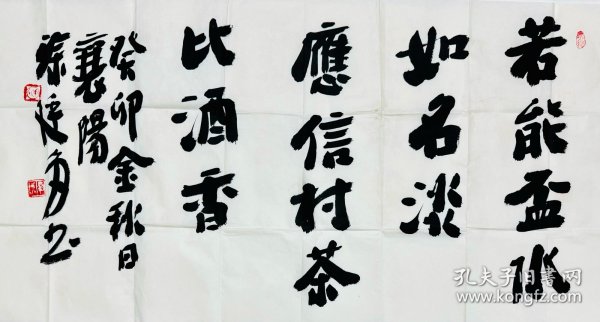 若能盃水
如名淡
應信村茶
比酒香
癸卯金秋日
襄陽
孔夫子旧书网
www.kongfz.com